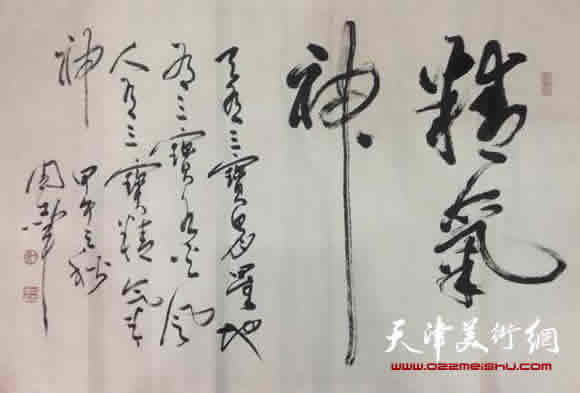 精氣
神
天有三寶日月星地
有三寶水火風
人有三寶精氣
神
甲午之秋
天津美術網
www.022meishu.com